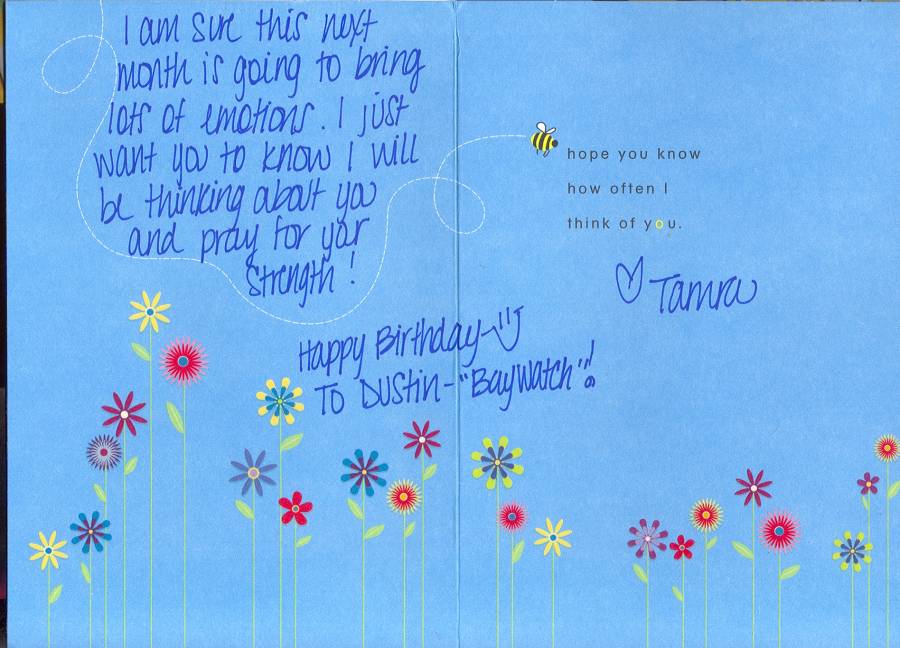 I am sure this next
month is going to bring
lots of emotions. I just
want you to know I will
be thinking about you
and pray for your
strength!
Happy Birthday
To Dustin- "Baywatch"!
hope you know
how often I
think of you.
Tamra